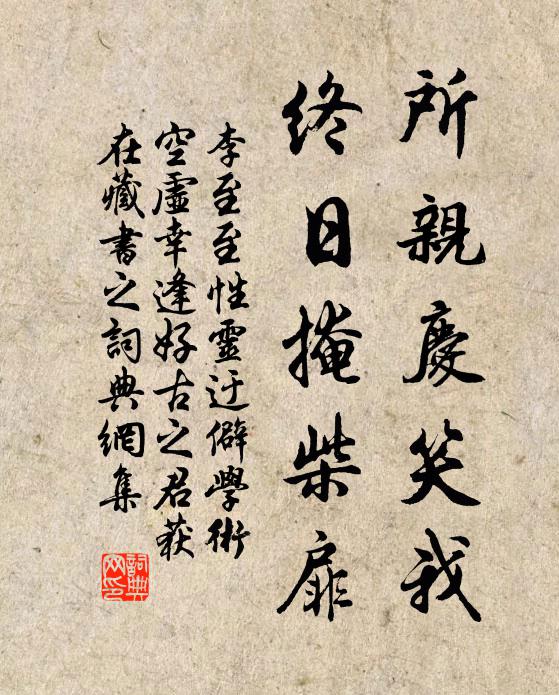 所親慶笑我
終日掩柴扉
李至至性靈迂僻學術
空虛幸逢好古之君获
在藏書之詞典網集
詞典网印